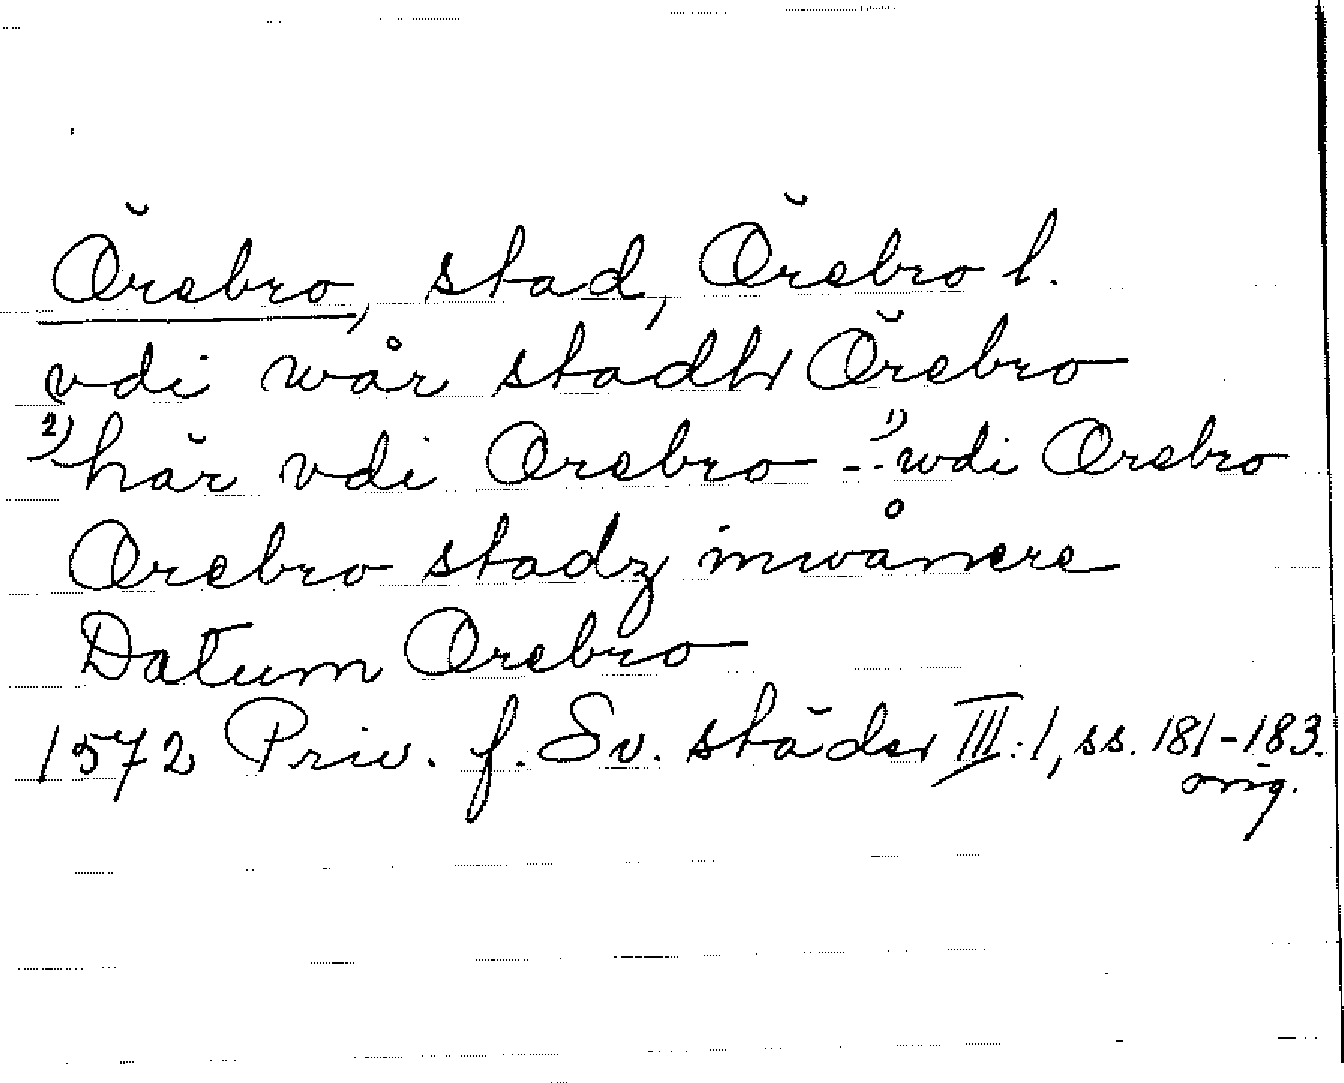 Örebro, stad, Örebro l.
vdi wår stadh Örebro
2) här vdi Orebro -. 1) wdi Orebro
Orebro stadz inwånere
Datum Orebro
1572 Priv. f. Sv. städer III:1, ss. 181-183.
orig.